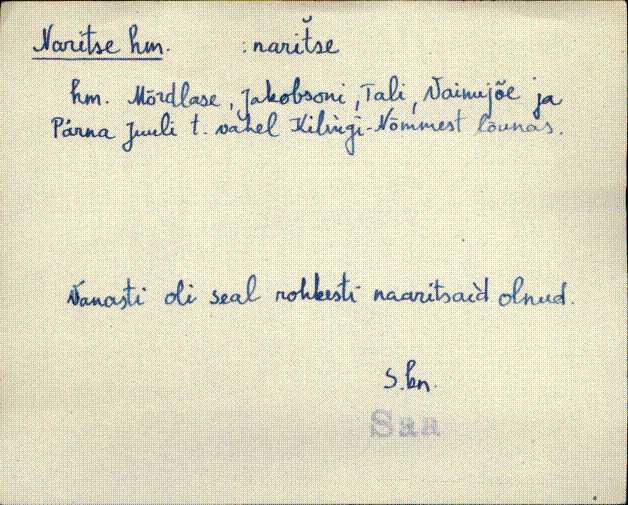 Naritse hm. : naritše
hm. Mõrdlase, Jakobsoni, Tali, Vainujõe ja
Pärna Juuli t. vahel Kilingi-Nõmmest lõunas.
Vanasti oli seal rohkesti naaritsaid olnud.
S. kn.
Saa